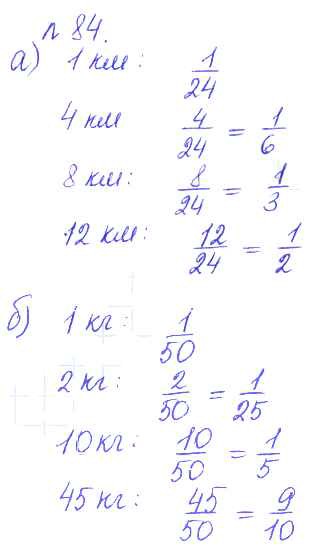 № 84.
а) 1 км: 1/24
4 км 4/24 = 1/6
8 км: 8/24 = 1/3
12 км: 12/24 = 1/2
б) 1 кг: 1/50
2 кг: 2/50 = 1/25
10 кг: 10/50 = 1/5
45 кг: 45/50 = 9/10